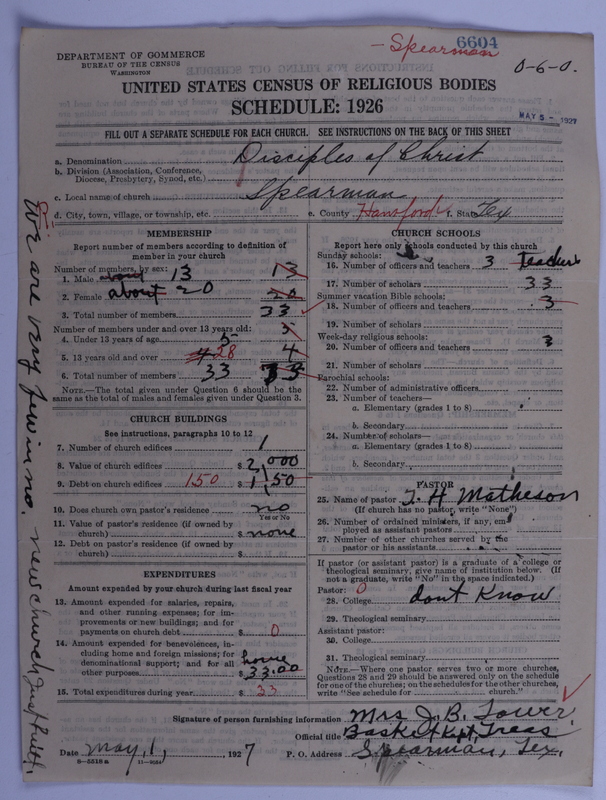 - Spearman
6604
0-6-0.
DEPARTMENT OF COMMERCE
BUREAU OF THE CENSUS
WASHINGTON
UNITED STATES CENSUS OF RELIGIOUS BODIES
SCHEDULE: 1926
MAY 5 - 1927
FILL OUT A SEPARATE SCHEDULE FOR EACH CHURCH. SEE INSTRUCTIONS ON THE BACK OF THIS SHEET
a. Denomination Disciples of Christ
b. Division (Association, Conference,
Diocese, Presbytery, Synod, etc.)
c. Local name of church Spearman
d. City, town, village, or township, etc. e. County Hansford f. State Tex
MEMBERSHIP
Report number of members according to definition of
member in your church
Number of members, by sex:
1. Male about 13 13
2. Female about 20 20
3. Total number of members 33
Number of members under and over 13 years old:
4. Under 13 years of age 5
5. 13 years old and over 28 4
6. Total number of members 33 33
NOTE.—The total given under Question 6 should be the
same as the total of males and females given under Question 3.
CHURCH BUILDINGS
See instructions, paragraphs 10 to 12
7. Number of church edifices 1
8. Value of church edifices $ 2,000
9. Debt on church edifices 150 $ 1,50
10. Does church own pastor's residence no
Yes or No
11. Value of pastor's residence (if owned by
church) $ none
12. Debt on pastor's residence (if owned by
church) $
EXPENDITURES
Amount expended by your church during last fiscal year
13. Amount expended for salaries, repairs,
and other running expense; for im-
provements or new buildings; and for
payments on church debt $ 0
14. Amount expended for benevolences, in-
cluding home and foreign missions; for
denominational support; and for all
other purposes $ 33.00
15. Total expenditures during year $ 33
CHURCH SCHOOLS
Report here only schools conducted by this church
Sunday schools:
16. Number of officers and teachers 3 Teachers
17. Number of scholars 33
Summer vacation Bible schools:
18. Number of officers and teachers 3
19. Number of scholars
Week-day religious schools:
20. Number of officers and teachers 3
21. Number of scholars
Parochial schools:
22. Number of administrative officers
23. Number of teachers—
a. Elementary (grades 1 to 8)
b. Secondary
24. Number of scholars—
a. Elementary (grades 1 to 8)
b. Secondary
PASTOR
25. Name of pastor J. H Matheson
(If church has no pastor, write "None")
26. Number of ordained ministers, if any, em-
ployed as assistant pastors
27. Number of other churches served by the
pastor or his assistants
If pastor (or assistant pastor) is a graduate of a college or
theological seminary, give name of institution below. (If
not a graduate, write "No" in the space indicated.)
Pastor: 0
28. College dont Know
29. Theological seminary
Assistant pastor:
30. College
31. Theological seminary
NOTE.—Where one pastor serves two or more churches,
Questions 28 and 29 should be answered only on the schedule
for one of the churches; on the schedules for the other churches,
write "See schedule for church."
Signature of person furnishing information Mrs J. B. Tower
Official title Treas
Date May, 1, 1927 P. O. Address Spearman, Tex,
8-5518a 11-9054
We are very few in no. new church just built.